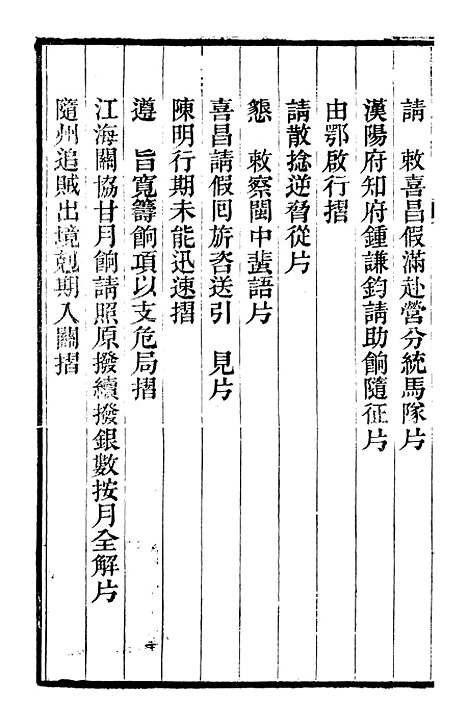 請　敕喜昌假滿赴營分統馬隊片
漢陽府知府鍾謙鈞請助餉隨征片
由鄂啟行摺
請散捻逆脅從片
懇　敕察閩中蜚語片
喜昌請假回旂咨送引　見片
陳明行期未能迅速摺
遵　旨寬籌餉項以支危局摺
江海關協甘月餉請照原撥續撥銀數按月全解片
隨州追賊出境剋期入關摺